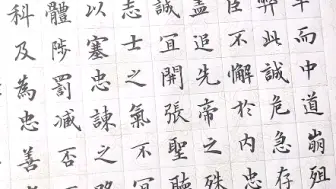 半而中道崩殂
弊此誠危急存
臣不懈於內忠
蓋追先帝之殊
誠宜開張聖聽
志士之氣不宜
以塞忠諫之
體陟罰臧否
科及為忠善